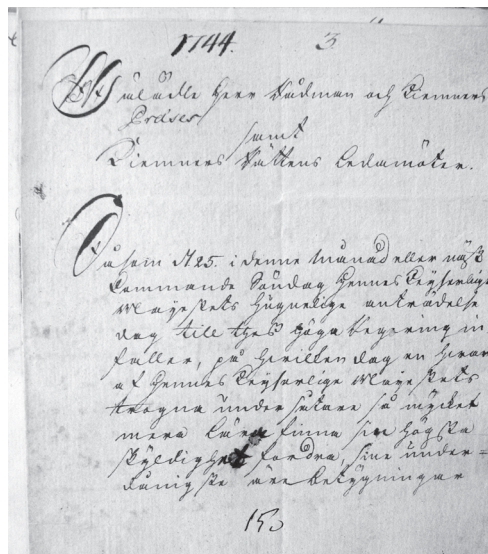 1744. 3.
Wäl ädle Herr Rådman och Kiemners
Præses
samt
Kiemners Rättens Ledamöter.
Såsom d 25. i denne Månad eller näst
kommande Söndag Hennes Keyserlige
Mayestets hugnelige anträdelse
dag till thes höga begering in
faller, på hvilken dag en hvar
af Hennes Keyserlige Mayestets
trogna undersutare så mycket
mera lära finna sin högsta
skyldighet fordra, sine under=
dånigste äre betygningar
15.